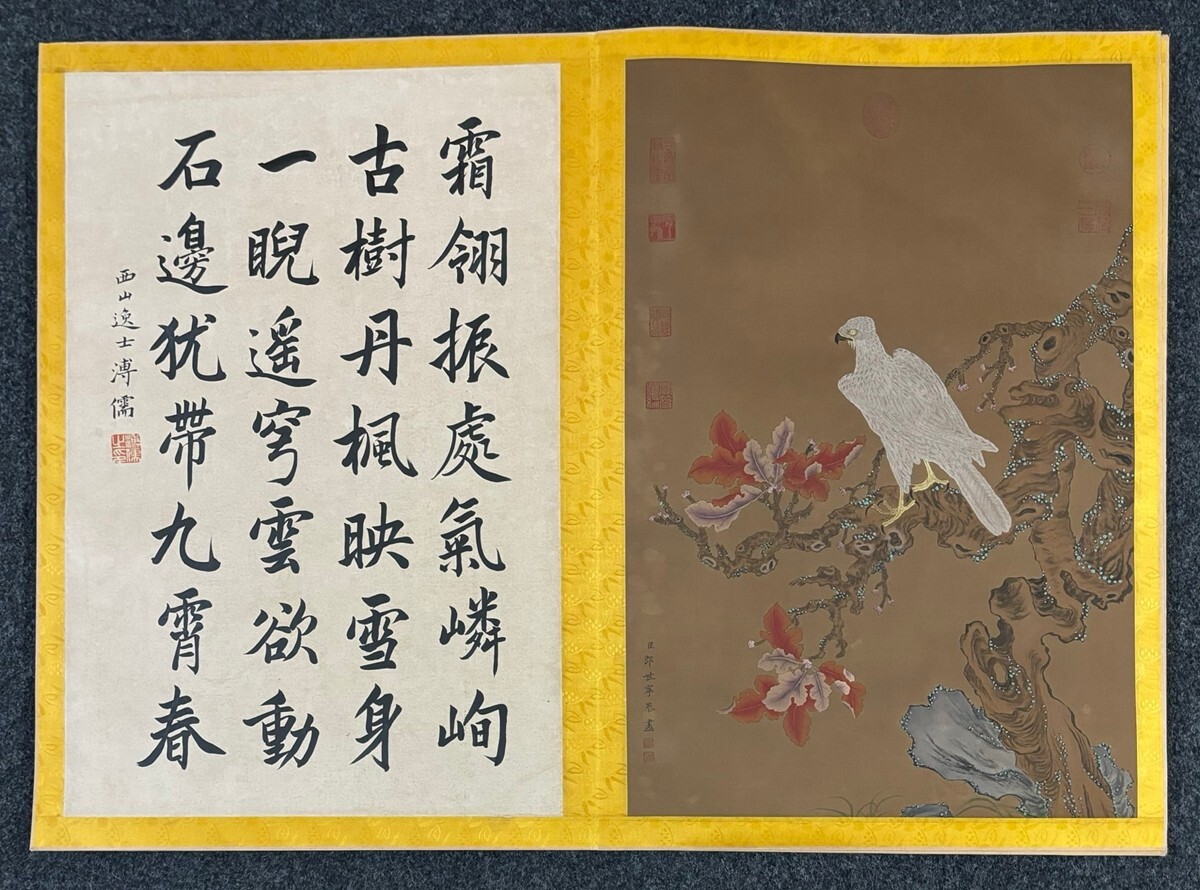 霜翎振處氣嶙峋
古樹丹楓映雪身
一睨遥穹雲欲動
石邊犹帶九霄春
西山逸士溥儒
臣郎世寧恭畫